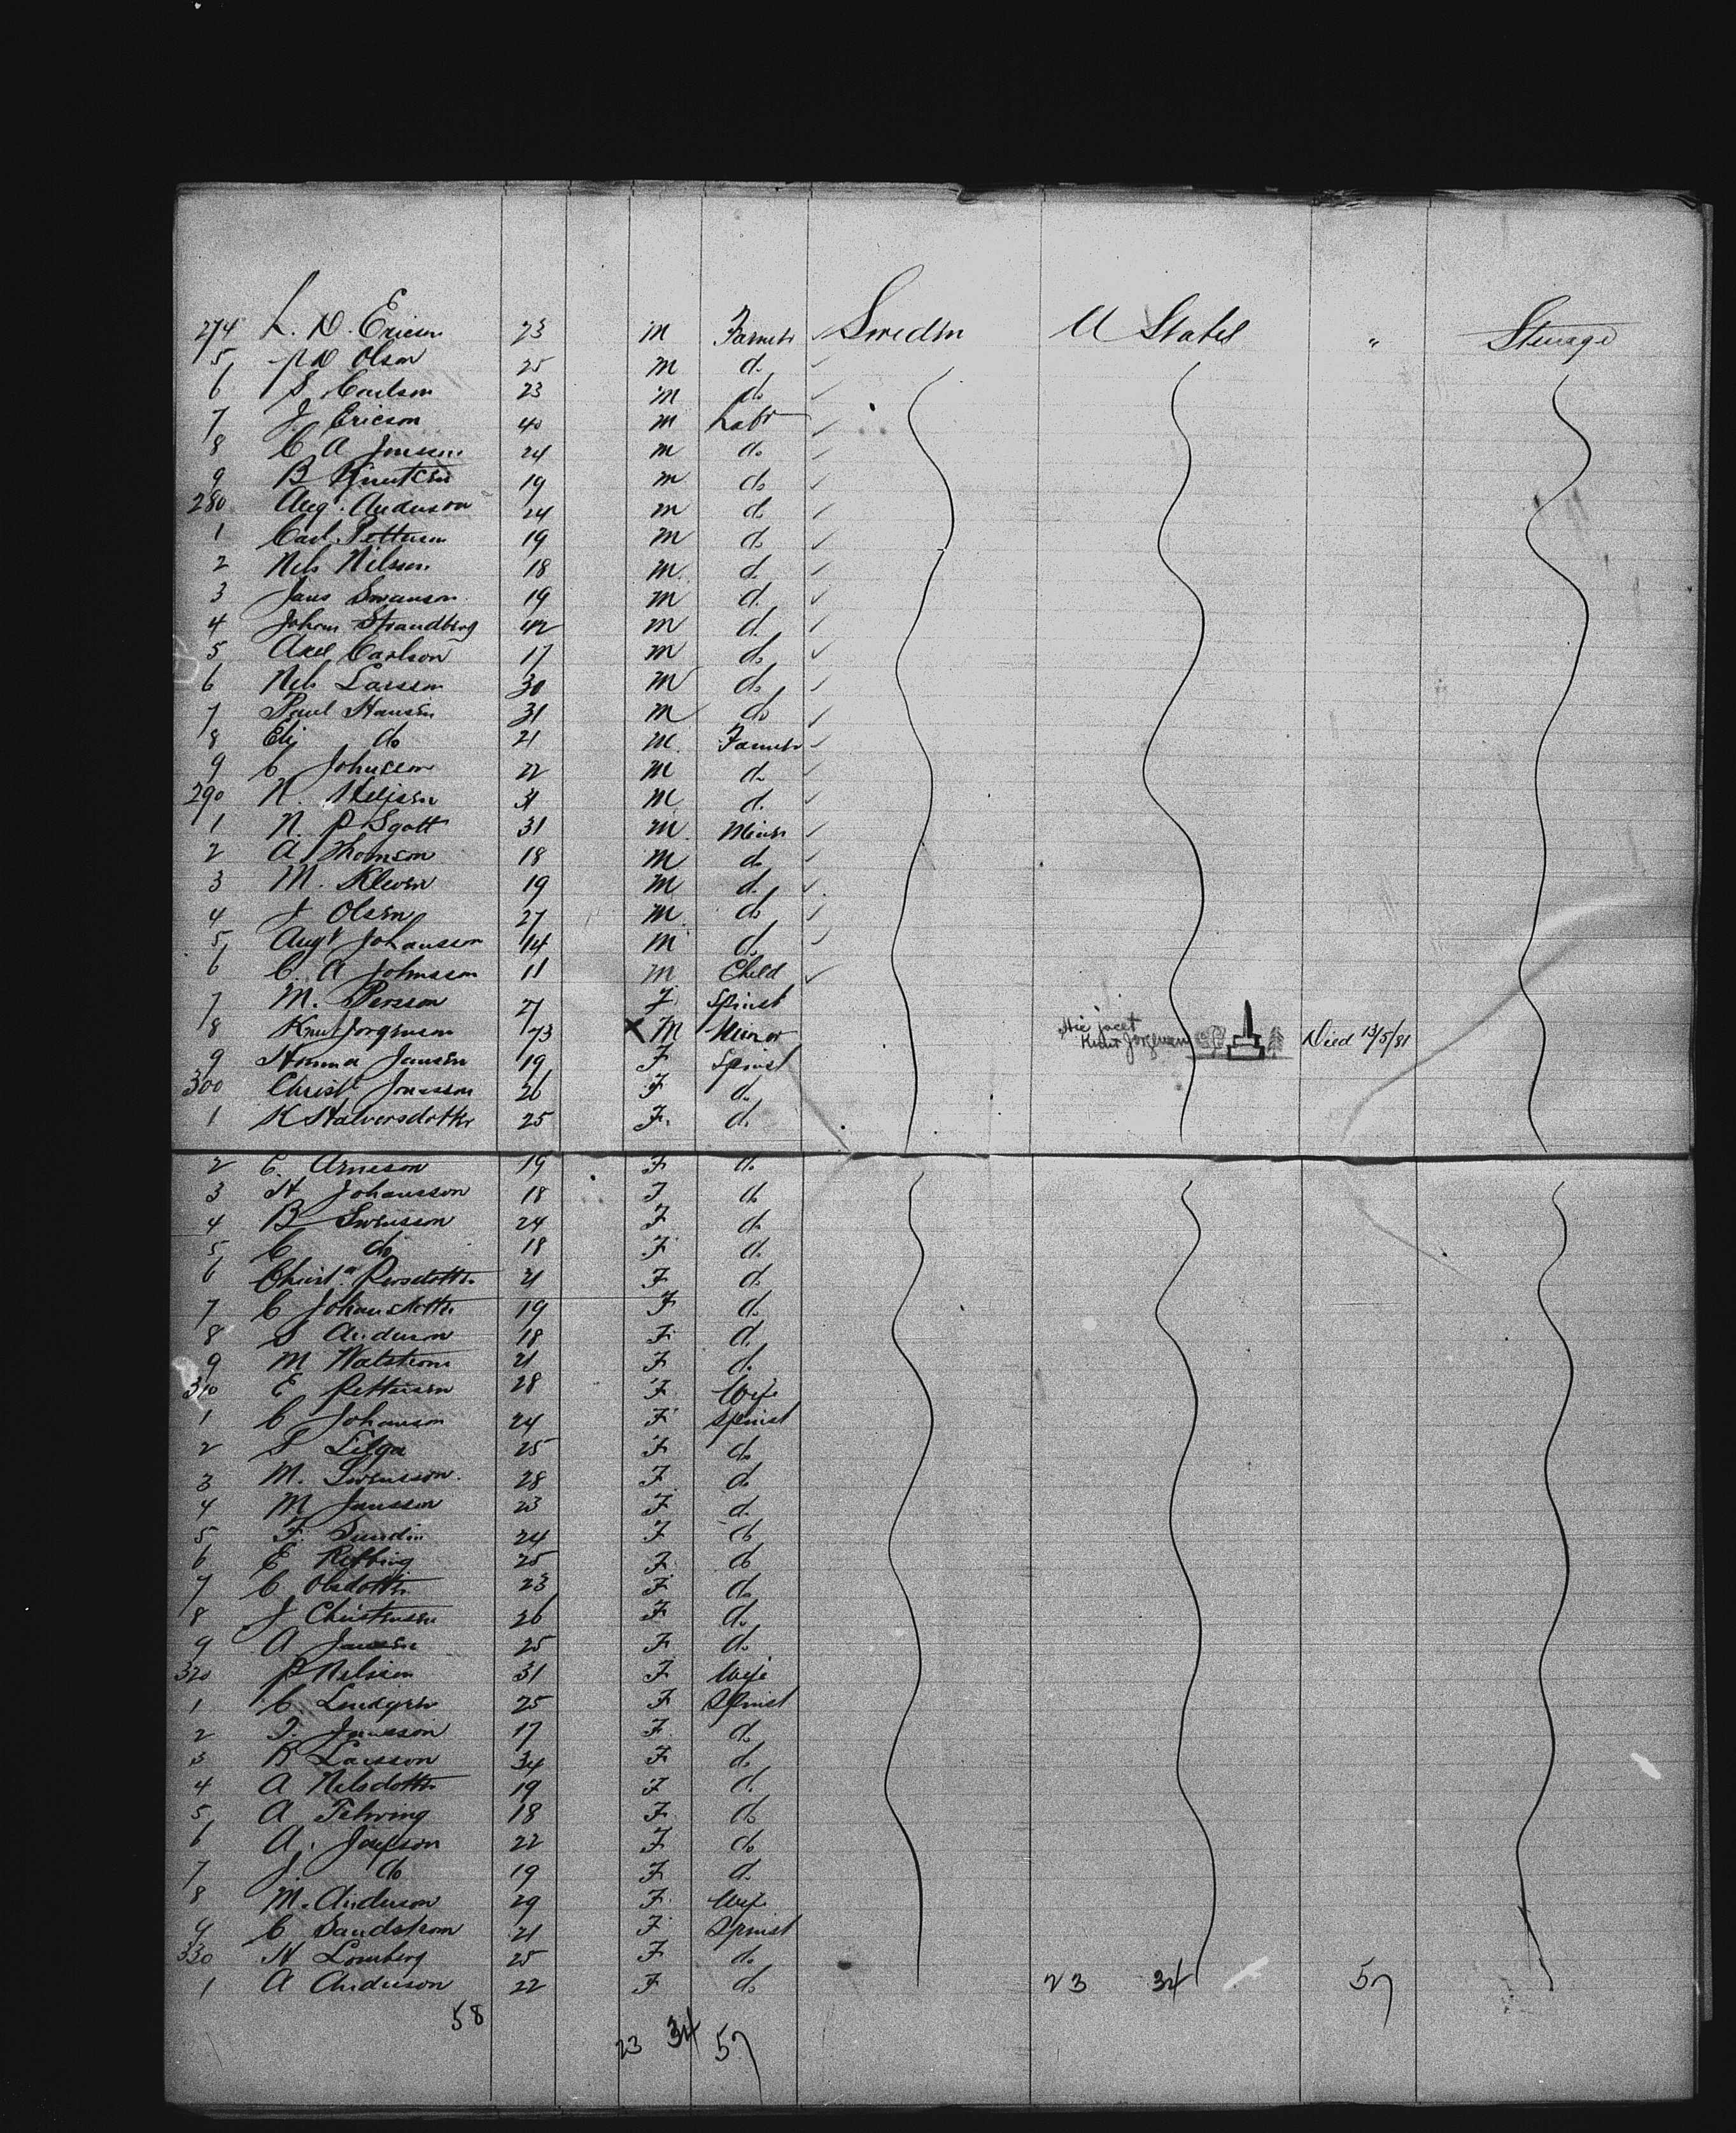 274 L. N. Ericson 23 M Farmer ✓ Sweden U States " Steerage
5 P N Olson 25 M do ✓
6 S Carlson 23 M do ✓
7 J Ericson 40 M Labr ✓
8 C A Jonsson 24 M do ✓
9 B Knutson 19 M do ✓
280 Augt Anderson 24 M do ✓
1 Carl Petterson 19 M do ✓
2 Nels Nilsson 18 M do ✓
3 Jans Swanson 19 M do ✓
4 Johan Strandberg 42 M do ✓
5 Axel Carlson 17 M do ✓
6 Nels Larsson 30 M do ✓
7 Paul Hansen 31 M do ✓
8 Eli do 21 M Farmer ✓
9 C Johnsson 22 M do ✓
290 N. M do ✓
1 N. P 31 M Miner ✓
2 A Thomson 18 M do ✓
3 M. Kleven 19 M do ✓
4 J Olsen 27 M do ✓
5 Augt Johanson 44 M do ✓
6 C. A Johnsson 11 M Child ✓
7 M. Persson 27 F Spinst
8 Knut Jorgenson 73 X M Minor Hic jacet Knut Jorgenson Died 13/5/81
9 Hanna Jansen 19 F Spinst
300 Christe Jonasson 26 F do
1 K Halversdotter 25 F. do
2 C. Arneson 19 F do
3 H Johansson 18 F do
4 B Swensson 24 F do
5 C do 18 F do
6 Christa Persdotter 21 F do
7 C Johansdotter 19 F do
8 S Anderson 18 F do
9 M Walstrom 21 F do
310 E Pettersen 28 F Wife
1 C Johanson 24 F Spinst
2 Lilga 25 F do
3 M. Swensson 28 F do
4 M Jansson 23 F do
5 F. Sundin 24 F do
6 E 25 F do
7 C Olsdotter 23 F do
8 J Christensen 26 F do
9 A Jansen 25 F do
320 P Nelsson 31 F Wife
1 C. Lindgren 25 F Spinst
2 T. Jonsson 17 F do
3 B Larsson 34 F do
4 A Nelsdotter 19 F do
5 A 18 F do
6 A. 22 F do
7 J. do 19 F do
8 M. Anderson 29 F. Wife
9 C Sandstrom 21 F Spinst
330 H Lomberg 25 F do
1 A Anderson 22 F do 23 34 57
58
23 34 57